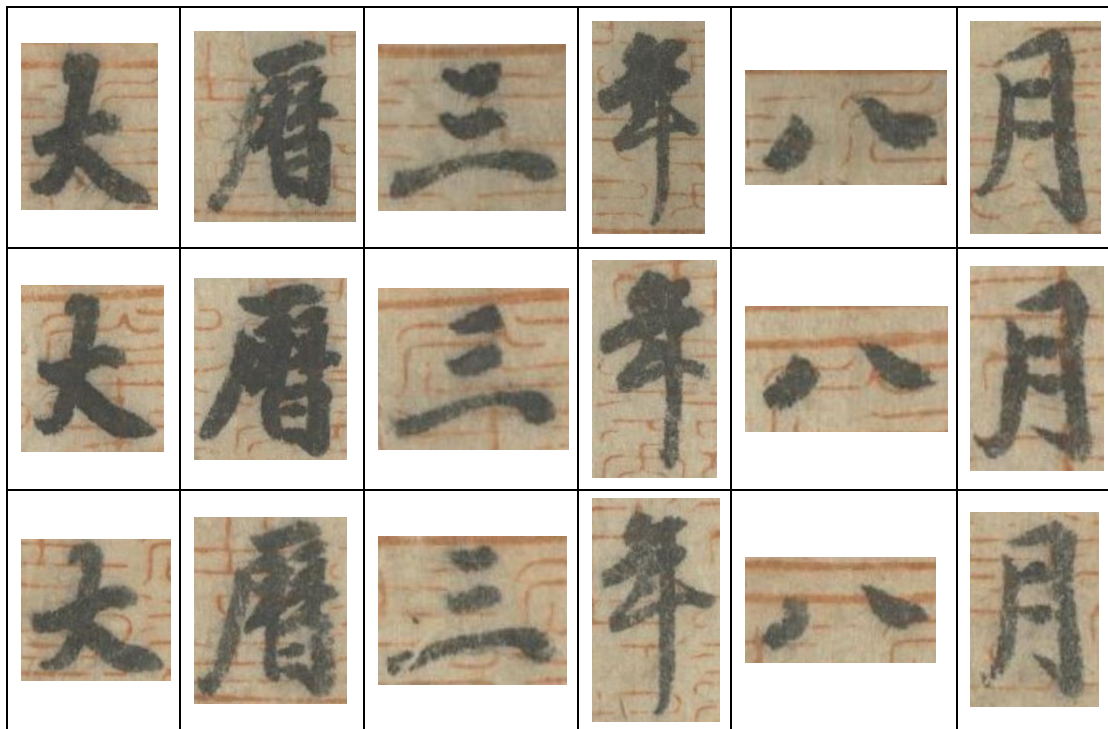 大曆三年八月
大曆三年八月
大曆三年八月